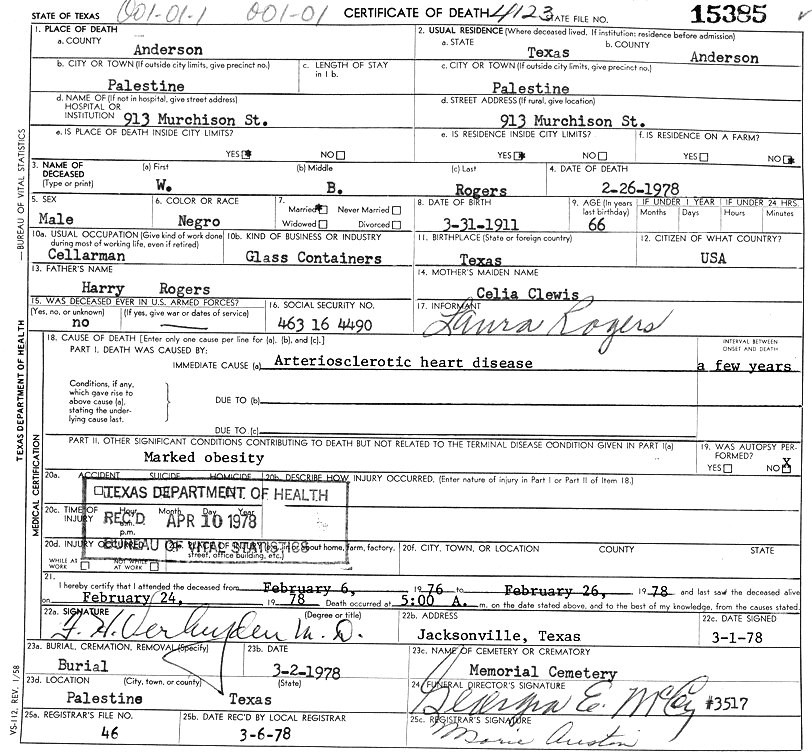 STATE OF TEXAS 001-01-1 001-01 CERTIFICATE OF DEATH 4123 STATE FILE NO. 15385
1. PLACE OF DEATH
a. COUNTY
Anderson
2. USUAL RESIDENCE (Where deceased lived. If institution: residence before admission)
a. STATE
Texas
b. COUNTY
Anderson
b. CITY OR TOWN (If outside city limits, give precinct no.)
Palestine
c. LENGTH OF STAY
in 1 b.
c. CITY OR TOWN (If outside city limits, give precinct no.)
Palestine
d. NAME OF (If not in hospital, give street address)
HOSPITAL OR
INSTITUTION 913 Murchison St.
d. STREET ADDRESS (If rural, give location)
913 Murchison St.
e. IS PLACE OF DEATH INSIDE CITY LIMITS?
YES NO
e. IS RESIDENCE INSIDE CITY LIMITS?
YES NO
f. IS RESIDENCE ON A FARM?
YES NO
3. NAME OF
DECEASED
(Type or print)
(a) First
W.
(b) Middle
B.
(c) Last
Rogers
4. DATE OF DEATH
2-26-1978
5. SEX
Male
6. COLOR OR RACE
Negro
7.
Married Never Married
Widowed Divorced
8. DATE OF BIRTH
3-31-1911
9. AGE (In years
last birthday)
66
IF UNDER 1 YEAR
Months Days
IF UNDER 24 HRS.
Hours Minutes
10a. USUAL OCCUPATION (Give kind of work done
during most of working life, even if retired)
Cellarman
10b. KIND OF BUSINESS OR INDUSTRY
Glass Containers
11. BIRTHPLACE (State or foreign country)
Texas
12. CITIZEN OF WHAT COUNTRY?
USA
13. FATHER'S NAME
Harry Rogers
14. MOTHER'S MAIDEN NAME
Celia Clewis
15. WAS DECEASED EVER IN U.S. ARMED FORCES?
(Yes, no, or unknown) (If yes, give war or dates of service)
no
16. SOCIAL SECURITY NO.
463 16 4490
17. INFORMANT
Laura Rogers
18. CAUSE OF DEATH [Enter only one cause per line for (a), (b), and (c).]
PART I. DEATH WAS CAUSED BY:
IMMEDIATE CAUSE (a) Arteriosclerotic heart disease
INTERVAL BETWEEN
ONSET AND DEATH
a few years
Conditions, if any,
which gave rise to
above cause (a),
stating the under-
lying cause last.
DUE TO (b)
DUE TO (c)
PART II. OTHER SIGNIFICANT CONDITIONS CONTRIBUTING TO DEATH BUT NOT RELATED TO THE TERMINAL DISEASE CONDITION GIVEN IN PART I(a)
Marked obesity
19. WAS AUTOPSY PER-
FORMED?
YES NO X
20a. ACCIDENT SUICIDE HOMICIDE
20b. DESCRIBE HOW INJURY OCCURRED. (Enter nature of injury in Part I or Part II of Item 18.)
TEXAS DEPARTMENT OF HEALTH
REC'D APR 10 1978
BUREAU OF VITAL STATISTICS
20c. TIME OF
INJURY
Hour Month Day Year
p.m.
20d. INJURY OCCURRED
WHILE AT
WORK
NOT WHILE
AT WORK
home, farm, factory,
street, office building, etc.)
20f. CITY, TOWN, OR LOCATION COUNTY STATE
21.
I hereby certify that I attended the deceased from February 6, 1976 to February 26, 1978 and last saw the deceased alive
on February 24, 1978 Death occurred at 5:00 A. m. on the date stated above, and to the best of my knowledge, from the causes stated.
22a. SIGNATURE (Degree or title)
M.D.
22b. ADDRESS
Jacksonville, Texas
22c. DATE SIGNED
3-1-78
23a. BURIAL, CREMATION, REMOVAL (Specify)
Burial
23b. DATE
3-2-1978
23c. NAME OF CEMETERY OR CREMATORY
Memorial Cemetery
23d. LOCATION (City, town, or county) (State)
Palestine Texas
24. FUNERAL DIRECTOR'S SIGNATURE
Georgia E. McCoy #3517
25a. REGISTRAR'S FILE NO.
46
25b. DATE REC'D BY LOCAL REGISTRAR
3-6-78
25c. REGISTRAR'S SIGNATURE
Marie Auston
VS-112, REV. 1/58
MEDICAL CERTIFICATION
TEXAS DEPARTMENT OF HEALTH — BUREAU OF VITAL STATISTICS